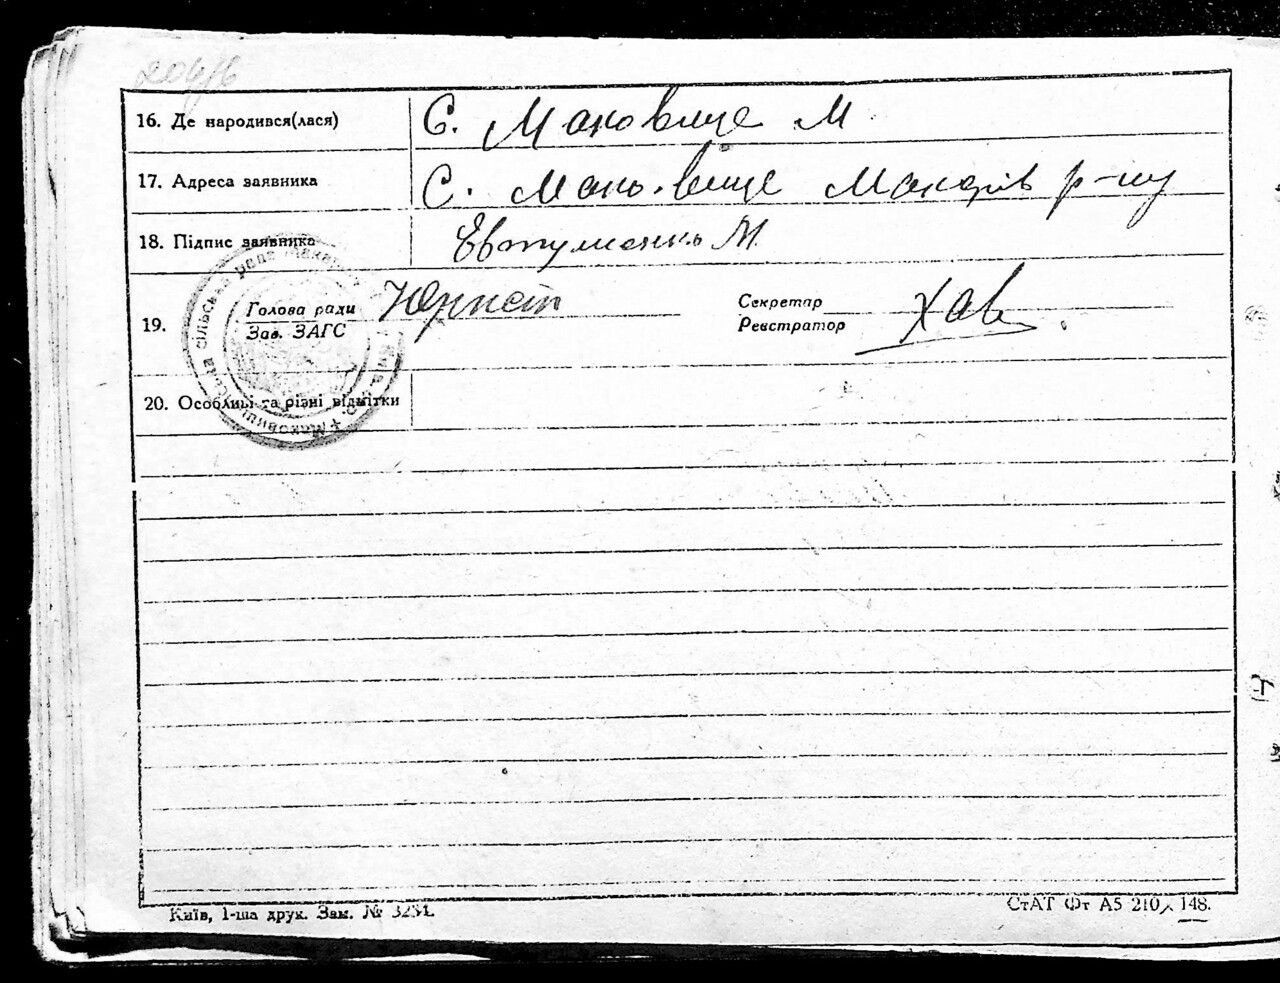 206/6
16. Де народився(лася) С. Маковище М
17. Адреса заявника С. Маковище Макарів р-ну
18. Підпис заявника Євтушенко М.
19. Голова ради
Зав. ЗАГС
Секретар Хав
Реєстратор
20. Особливі та різні відмітки
Київ, 1-ша друк. Зам. №
СтАТ Фт А5 210 148.